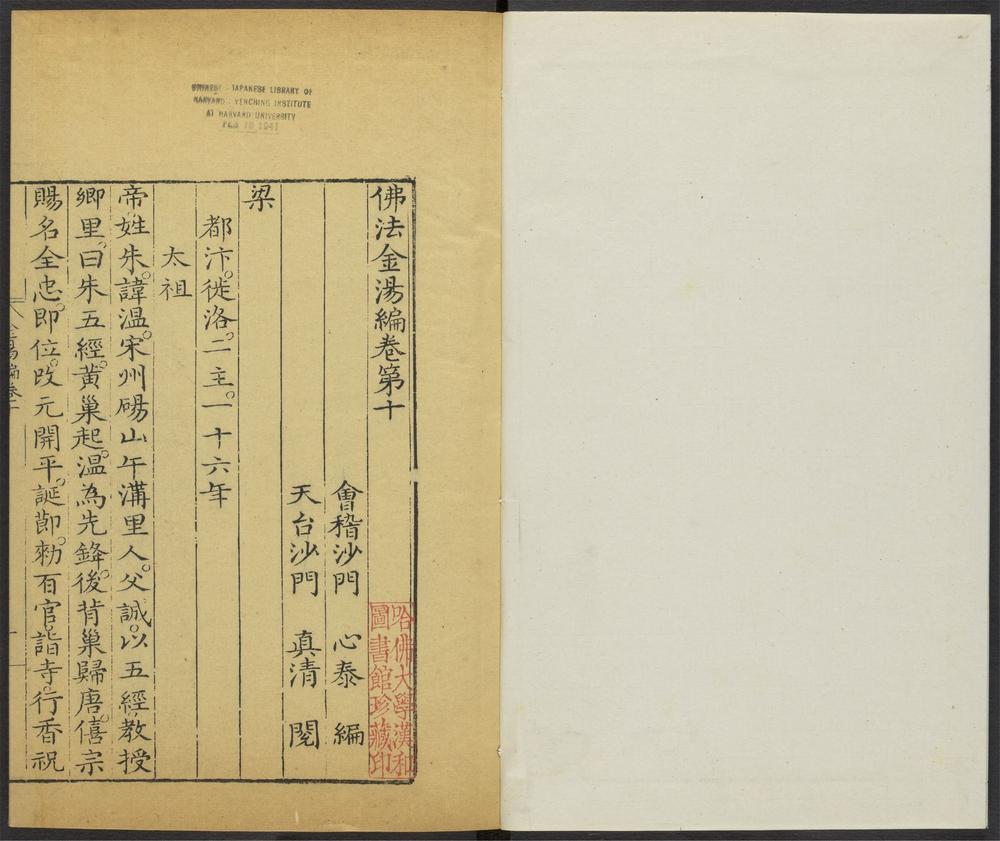 CHINESE - JAPANESE LIBRARY OF
HARVARD - YENCHING INSTITUTE
AT HARVARD UNIVERSITY
FEB 1941
佛法金湯編卷第十
會稽沙門 心泰 編
天台沙門 真清 閱
梁
都汴。徙洛。二主。一十六年
太祖
帝姓朱。諱溫。宋州碭山午溝里人。父誠。以五經教授
鄉里。曰朱五經。黃巢起。溫為先鋒。後背巢歸唐。僖宗
賜名全忠。即位。改元開平。誕節。勑百官詣寺。行香祝
哈佛大學漢和
圖書館珍藏印